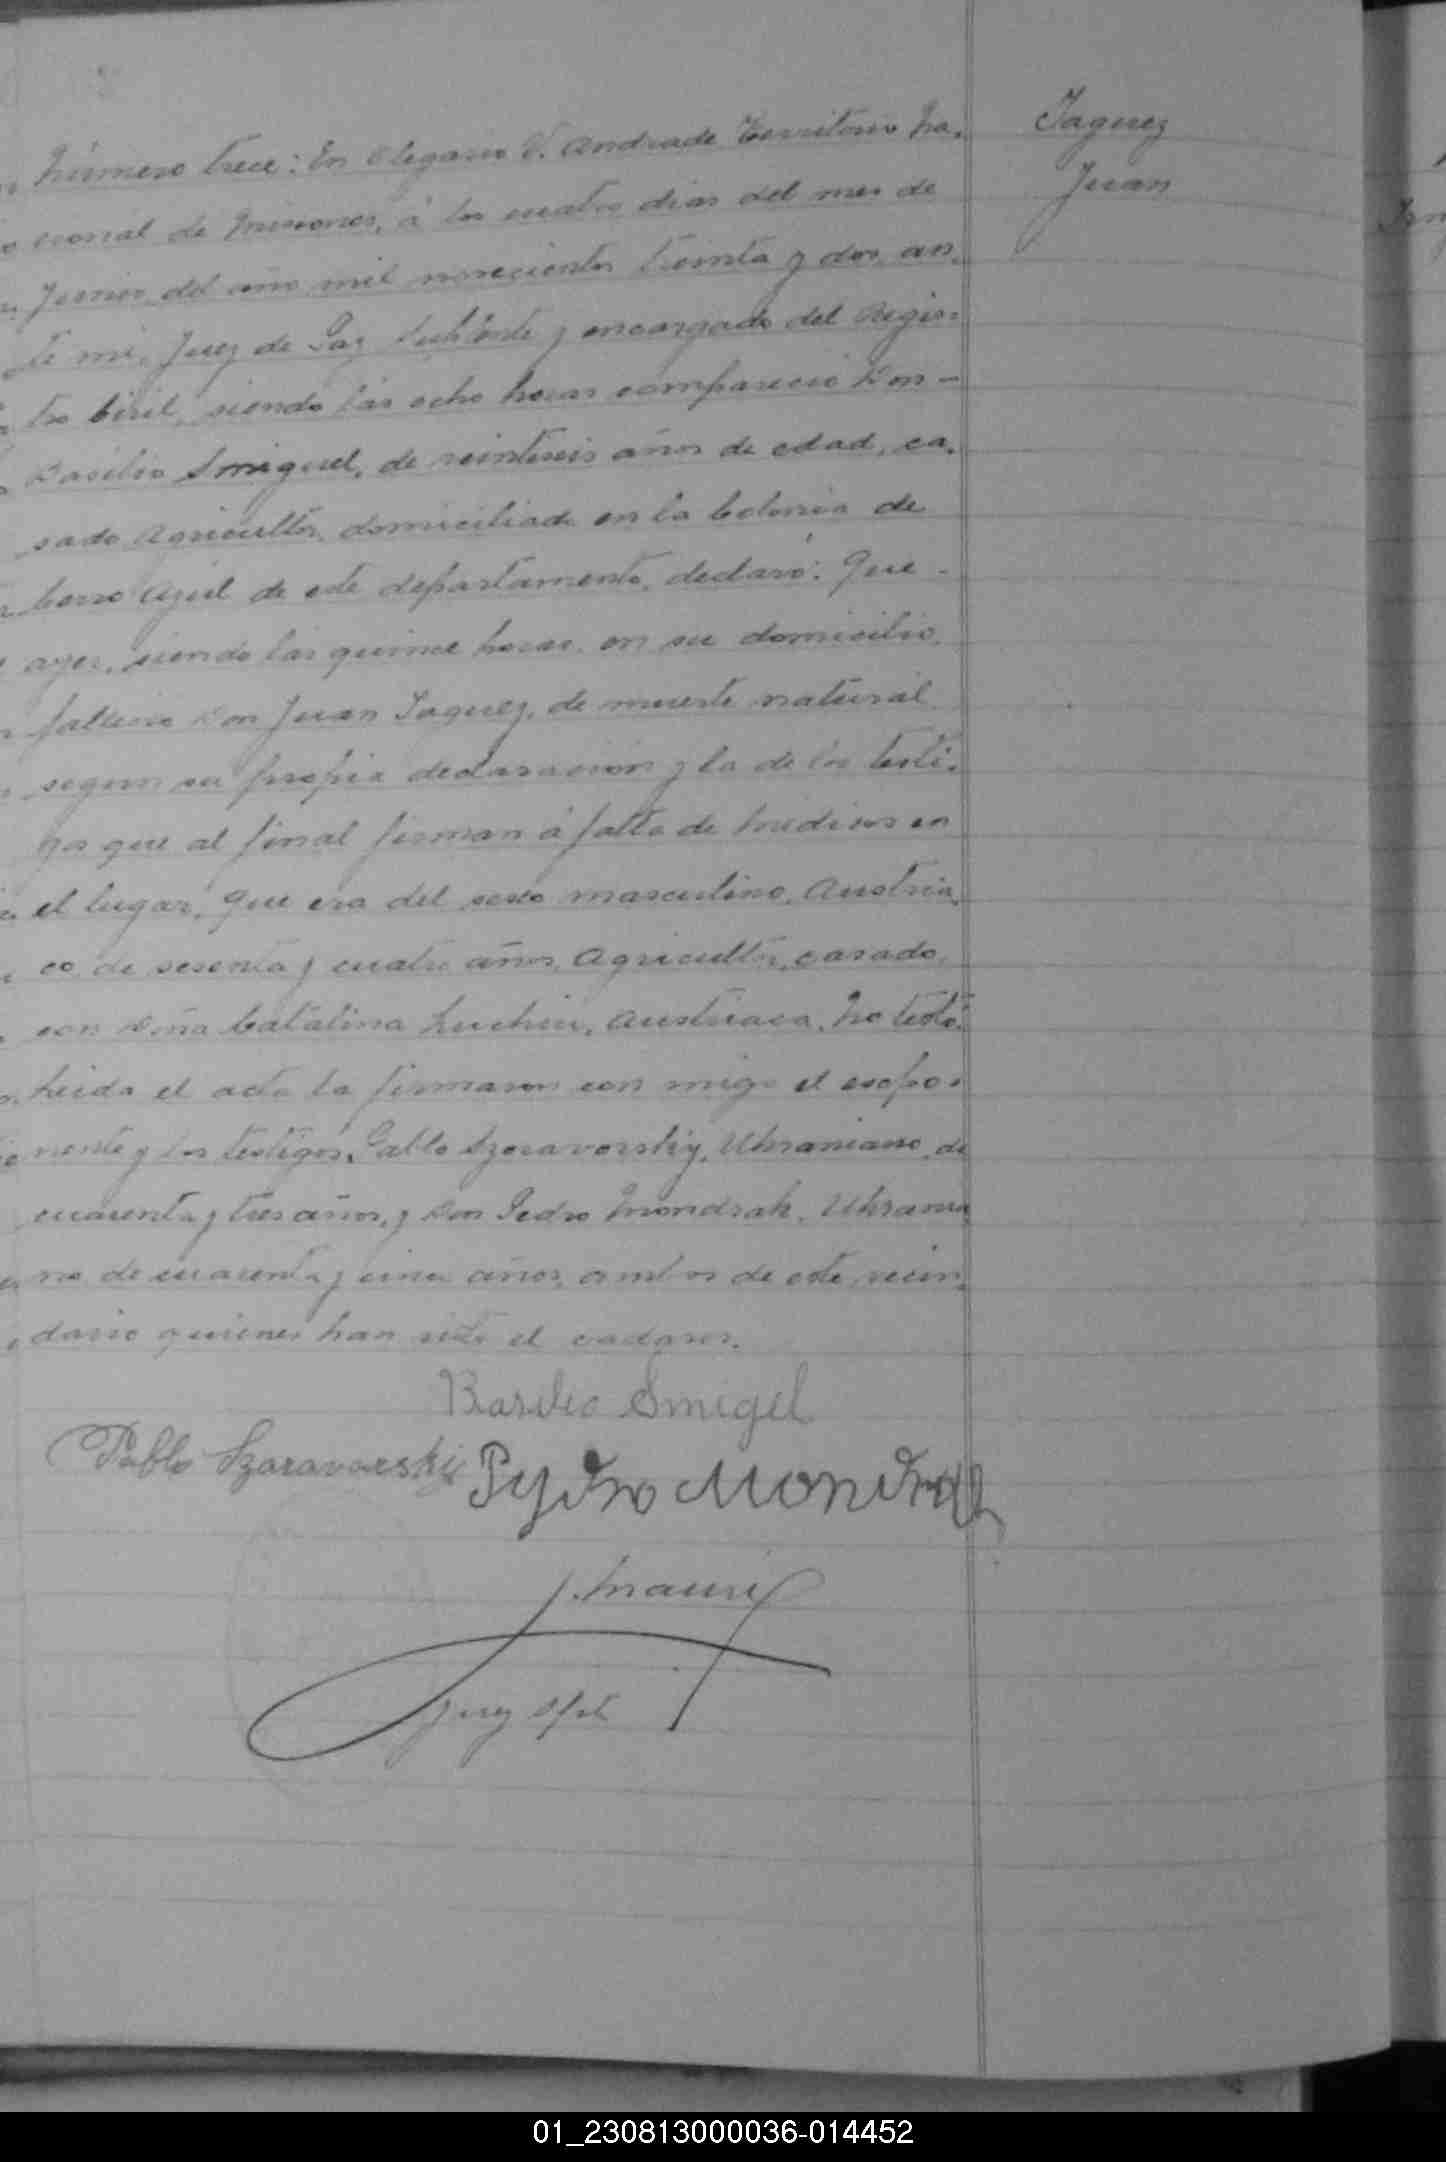 Taguez
Juan
Número trece: En Olegario V. Andrade Territorio Na-
cional de Misiones, á los cuatro dias del mes de
Junio del año mil novecientos treinta y dos, an-
te mi, Juez de Paz Suplente y encargado del Regis-
tro Civil, siendo las ocho horas comparecio Don -
Basilio Smiguel, de veinteseis años de edad, ca-
sado, Agricultor, domiciliado en la Colonia de
Cerro Azul de este departamento, declaró: Que -
ayer, siendo las quince horas, en su domicilio,
fallecio Don Juan Taguez, de muerte natural
segun su propia declaracion y la de los testi-
gos que al final firman á falta de Medicos en
el lugar, Que era del sexo masculino, Austria-
co, de sesenta y cuatro años, Agricultor, casado,
con Doña Catalina Austriaca, No testó.
Leida el acta la firmaron con migo el espo-
nente y los testigos, Pablo Szaravorskiy, Ukraniano, de
cuarenta y tres años, y Don Pedro Mondrak, Ukrania
no de cuarenta y cinco años, ambos de este vecin-
dario quienes han visto el cadaver.
Basilio Smigel
Pablo Szaravorskiy Pydro Mondrak
J. Mauri
Juez Splt
01_230813000036-014452